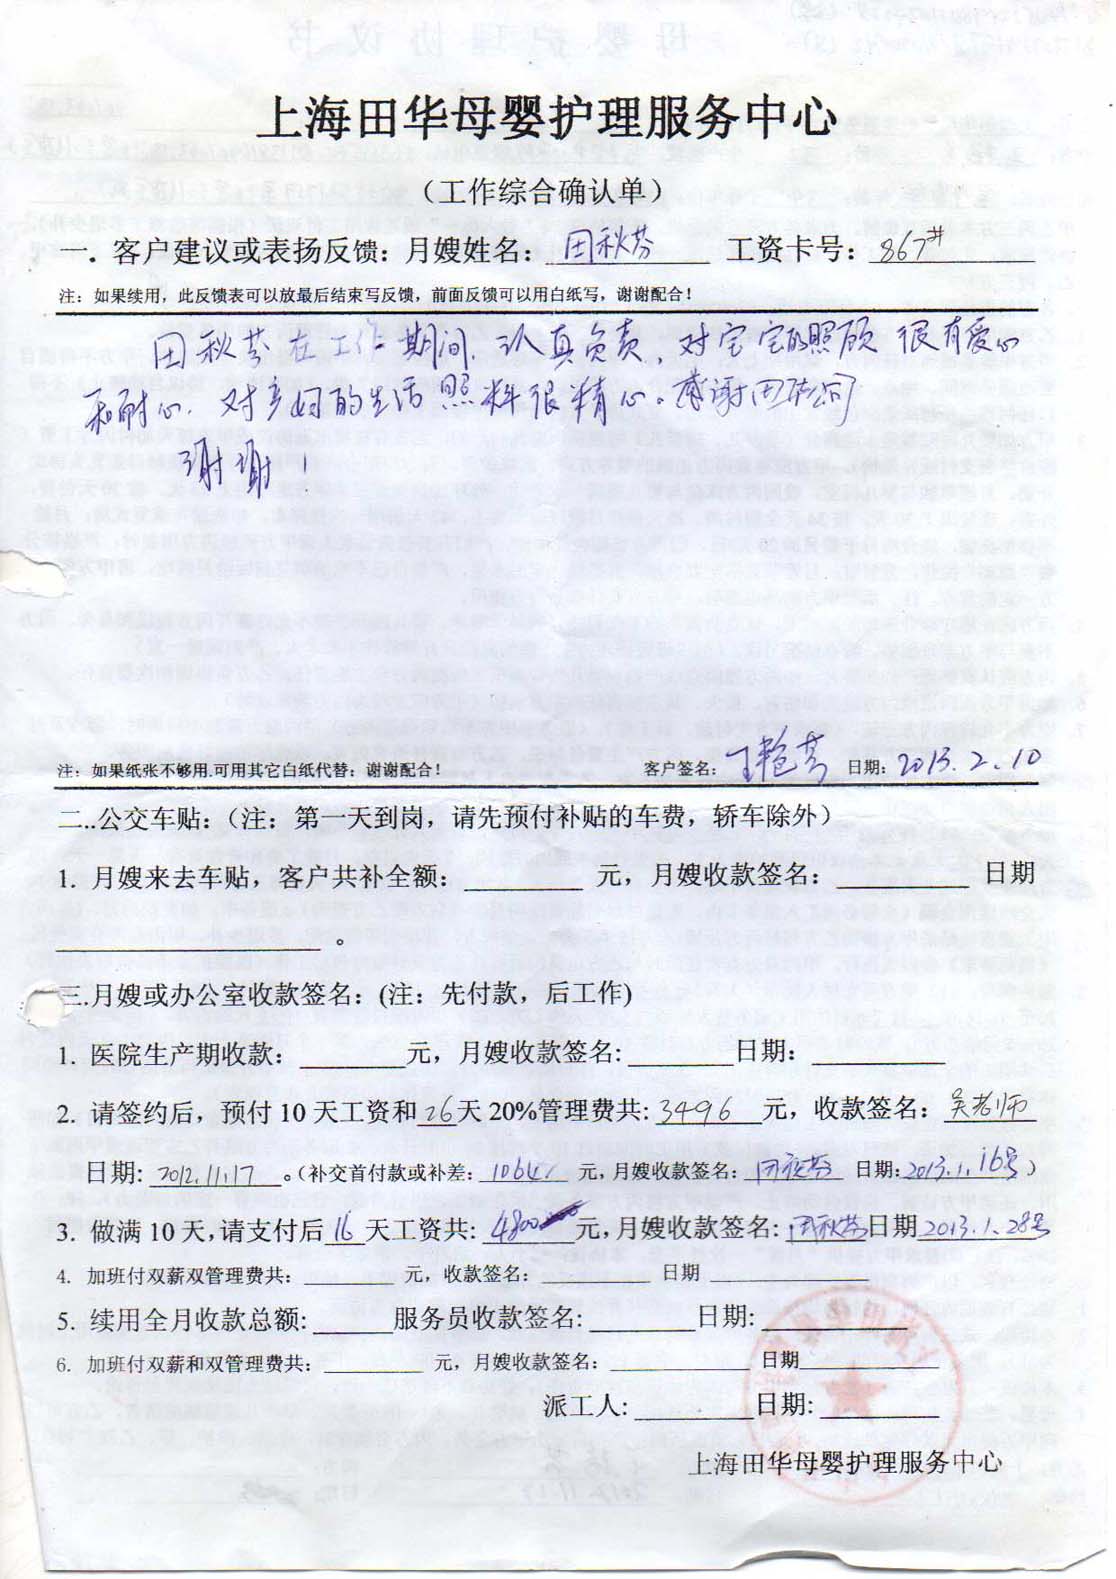 上海田华母婴护理服务中心
（工作综合确认单）
. 客户建议或表扬反馈：月嫂姓名： 田秋芬 工资卡号：867#
注：如果续用，此反馈表可以放最后结束写反馈，前面反馈可以用白纸写，谢谢配合！
田秋芬在工作期间，认真负责，对宝宝的照顾很有爱心
和耐心. 对产妇的生活照料很精心。感谢田华公司
谢谢！
注：如果纸张不够用.可用其它白纸代替；谢谢配合！ 客户签名： 日期：2013.2.10
二..公交车贴：（注：第一天到岗，请先预付补贴的车费，轿车除外）
1. 月嫂来去车贴，客户共补全额： 元，月嫂收款签名： 日期
。
三.月嫂或办公室收款签名：(注：先付款，后工作)
1. 医院生产期收款： 元，月嫂收款签名: 日期：
2. 请签约后，预付 10 天工资和 26 天 20%管理费共: 3496 元，收款签名：吴老师
日期: 2012.11.17 。（补交首付款或补差： 1064 元，月嫂收款签名：田秋芬 日期:2013.1.16号 ）
3. 做满 10 天，请支付后 16 天工资共: 4800 元，月嫂收款签名: 田秋芬 日期 2013.1.28号
4. 加班付双薪双管理费共： 元，收款签名： 日期
5. 续用全月收款总额: 服务员收款签名: 日期:
6. 加班付双薪和双管理费共： 元，月嫂收款签名： 日期
派工人: 日期:
上海田华母婴护理服务中心